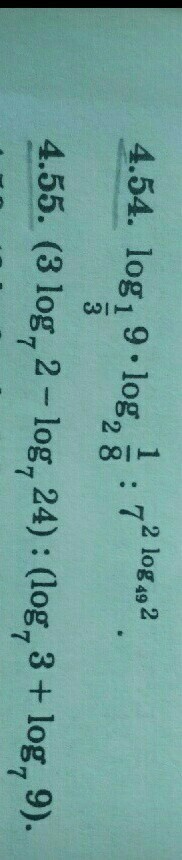 4.54. log_{1/3} 9 · log_2 1/8 : 7^{2 log_{49} 2}.
4.55. (3 log_7 2 − log_7 24) : (log_7 3 + log_7 9).